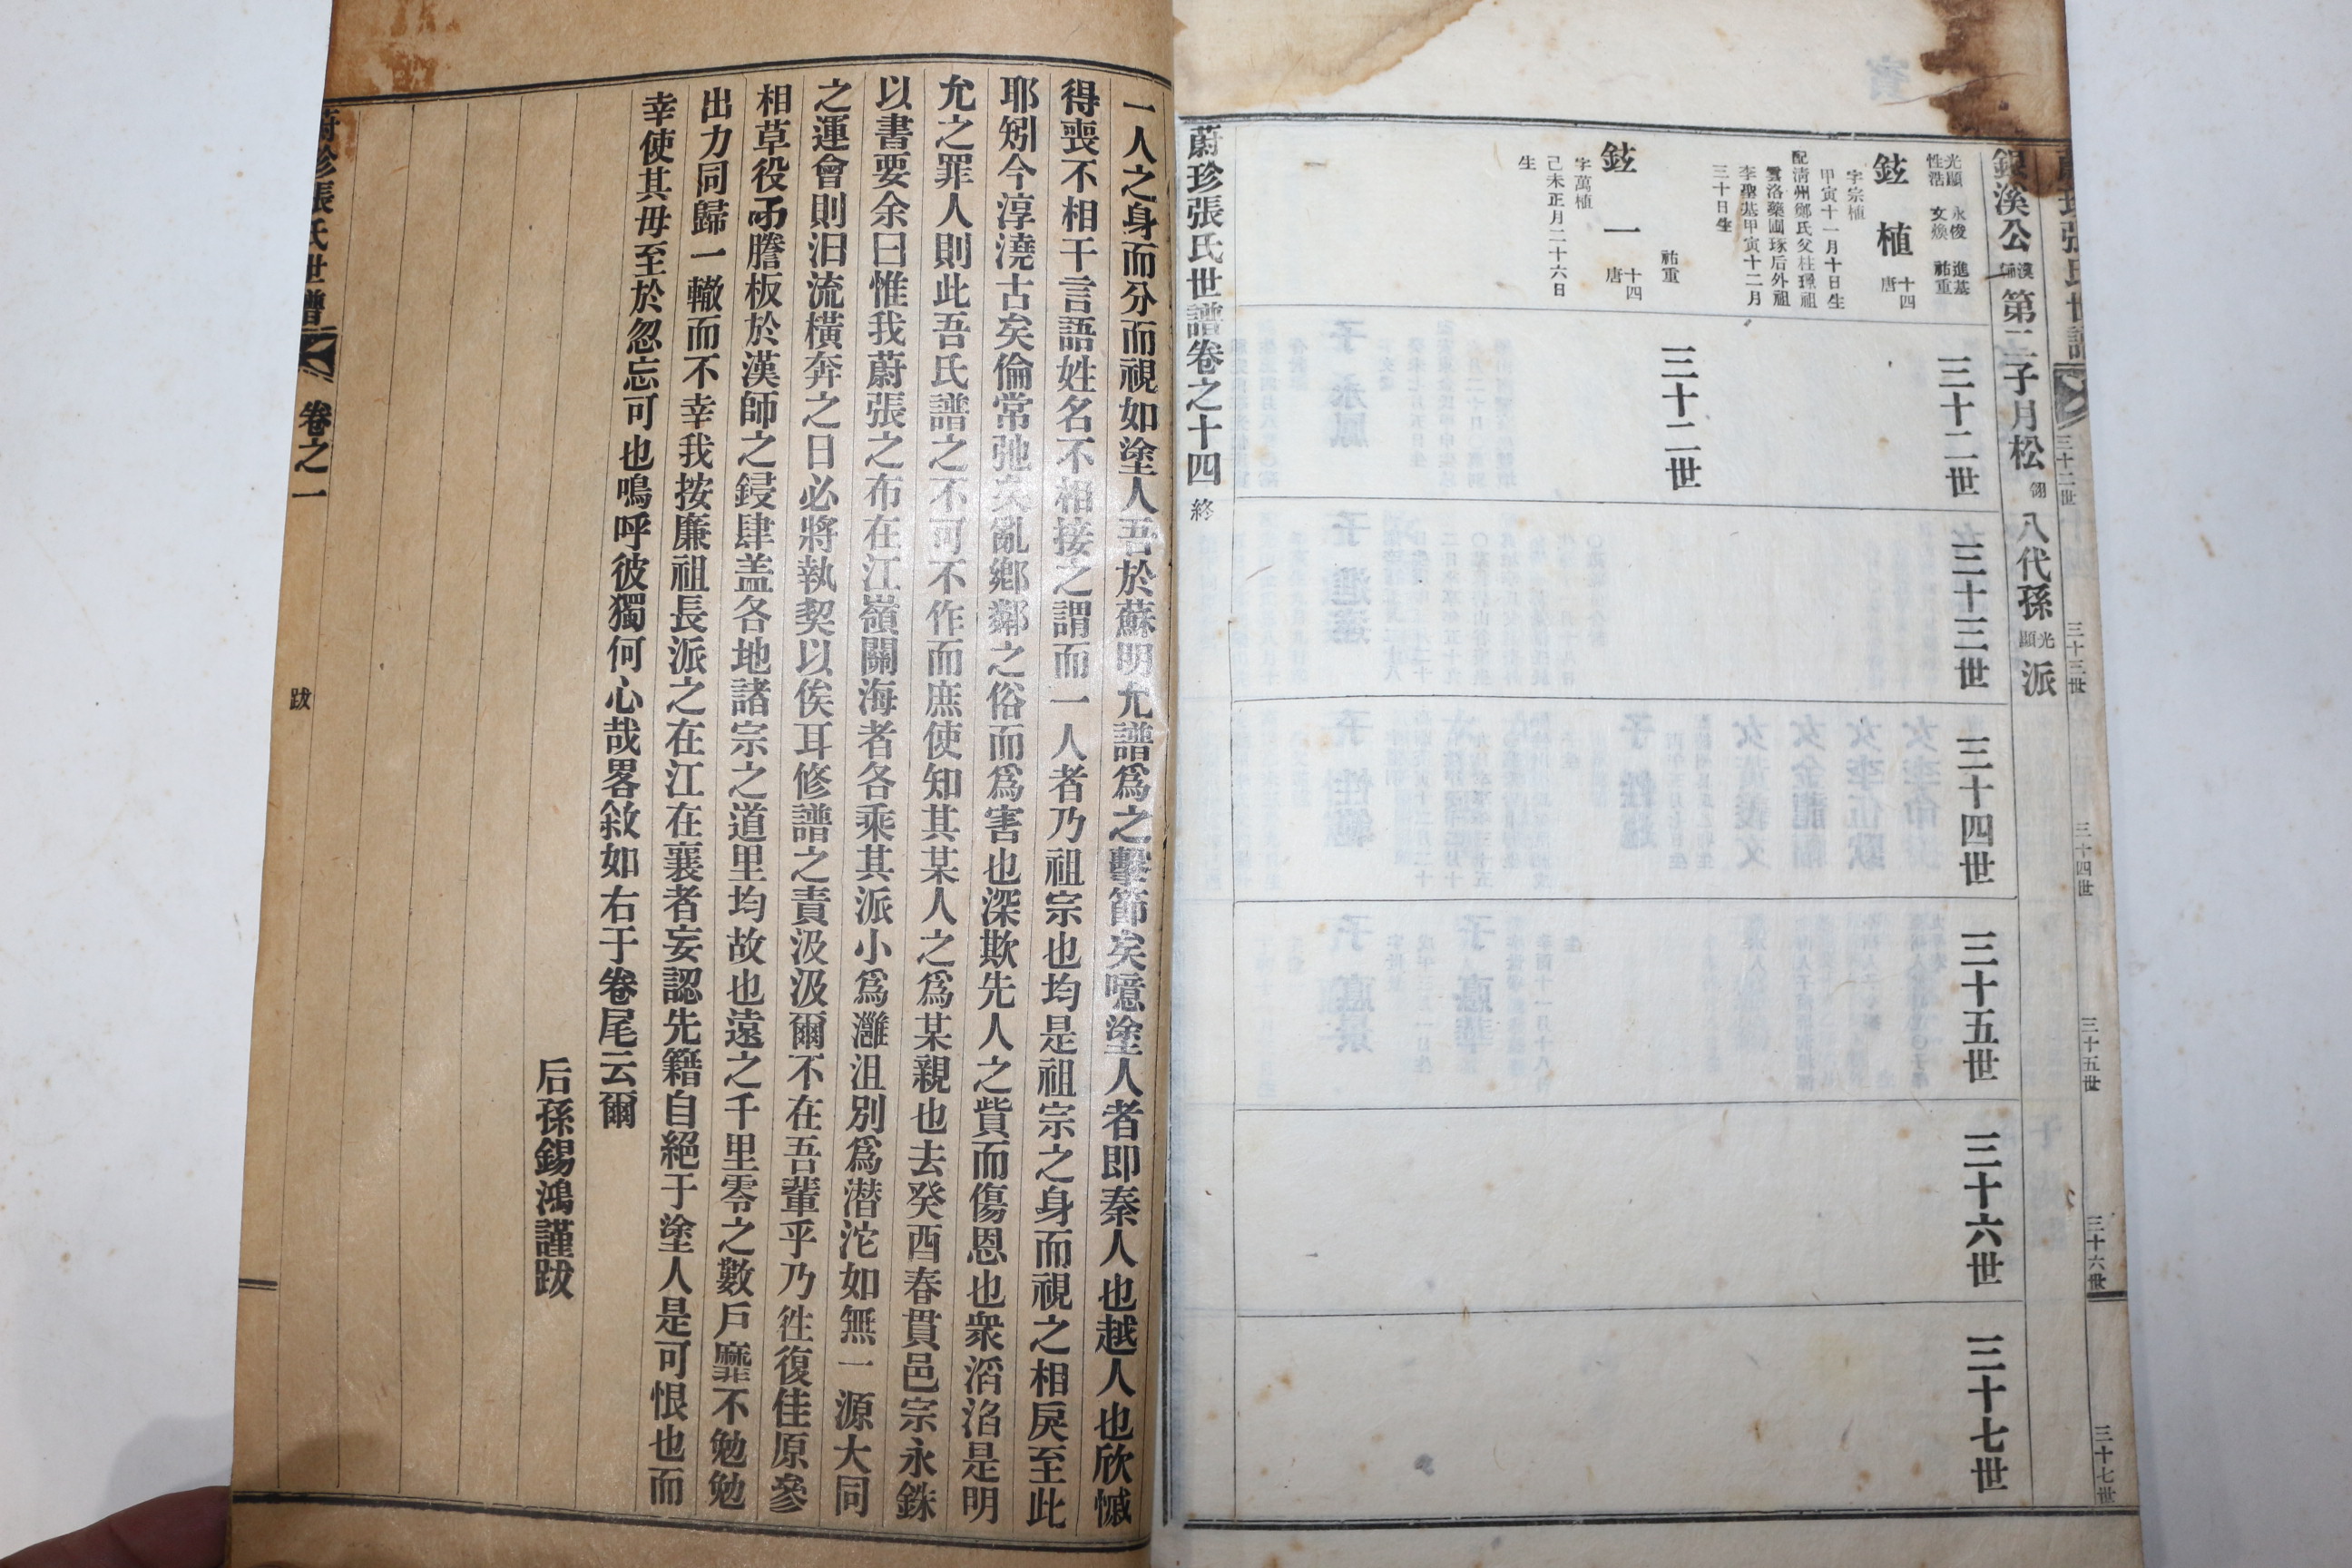 蔚珍張氏世譜
三十二世
三十三世
三十四世
三十五世
三十六世
三十七世
銀溪公漢師第二子月松翎八代孫光顯派
光顯 永俊 進基
性浩 文煥 祐重
鉉植 十四唐
字宗植
甲寅十一月十日生
配淸州鄭氏父柱琿祖
雲洛藥圃琢后外祖
李聖基甲寅十二月
三十日生
祐重
鉉一 十四唐
字萬植
己未正月二十六日
生
三十二世
三十三世
三十四世
三十五世
三十六世
三十七世
三十二世
蔚珍張氏世譜卷之十四 終
一人之身而分而視如塗人吾於蘇明允譜爲之擊節矣噫塗人者即秦人也越人也欣慽
得喪不相干言語姓名不相接之謂而一人者乃祖宗也均是祖宗之身而視之相戾至此
耶矧今淳澆古矣倫常弛矣亂鄕鄰之俗而爲害也深欺先人之貲而傷恩也衆滔滔是明
允之罪人則此吾氏譜之不可不作而庶使知其某人之爲某親也去癸酉春貫邑宗永銖
以書要余曰惟我蔚張之布在江嶺關海者各乘其派小爲灉沮別爲潛沱如無一源大同
之運會則汨流橫奔之日必將執契以俟耳修譜之責汲汲爾不在吾輩乎乃徃復佳原參
相草役而謄板於漢師之鋟肆盖各地諸宗之道里均故也遠之千里零之數戶靡不勉勉
出力同歸一轍而不幸我按廉祖長派之在江在襄者妄認先籍自絕于塗人是可恨也而
幸使其毋至於忽忘可也鳴呼彼獨何心哉畧敘如右于卷尾云爾
后孫錫鴻謹跋
蔚珍張氏世譜 卷之一 跋